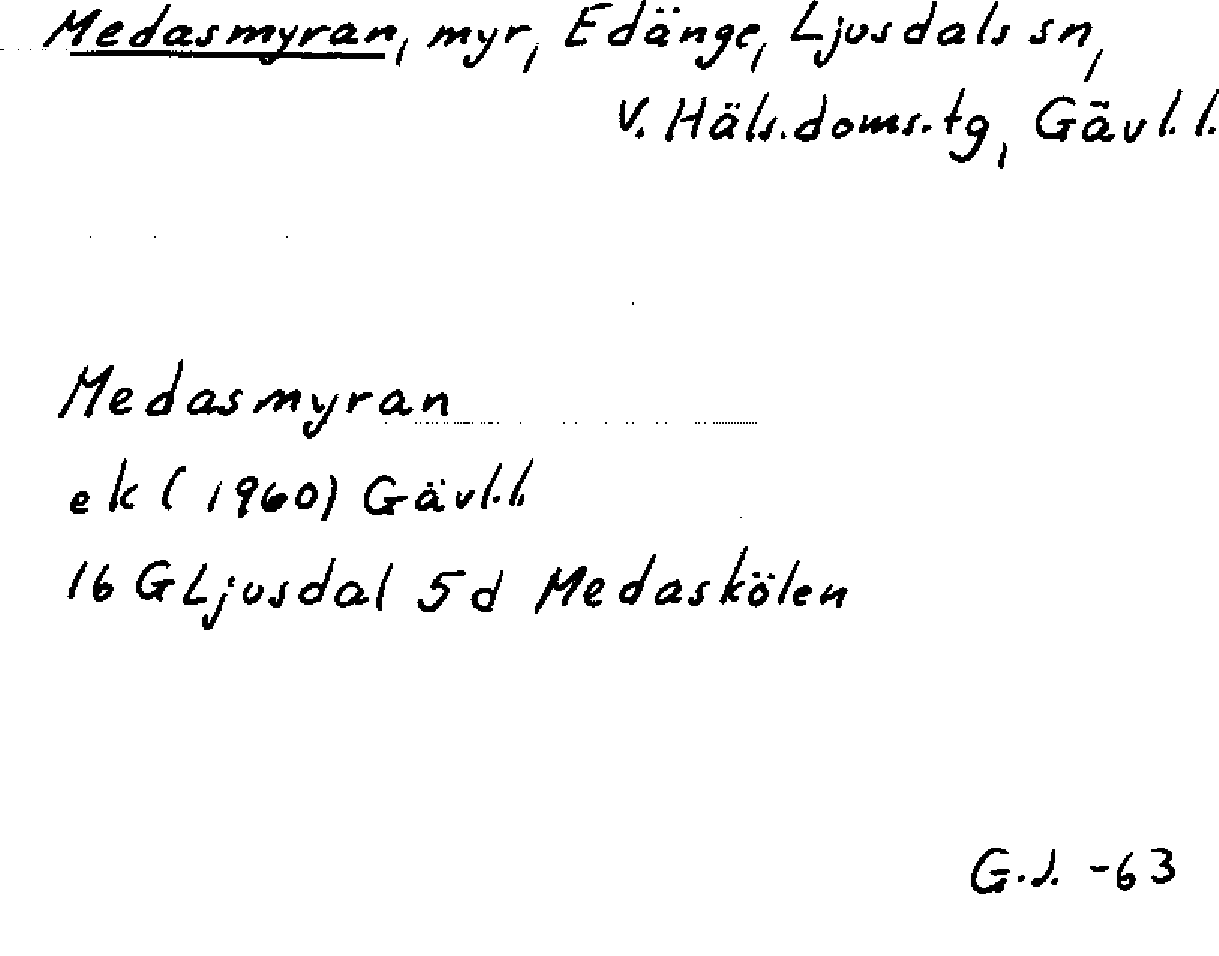 Medasmyran, myr, Edänge, Ljusdals sn,
V. Häls. doms. tg, Gävl. l.
Medasmyran
ek (1960) Gävl. l.
16 G Ljusdal 5 d Medaskölen
G.J. -63